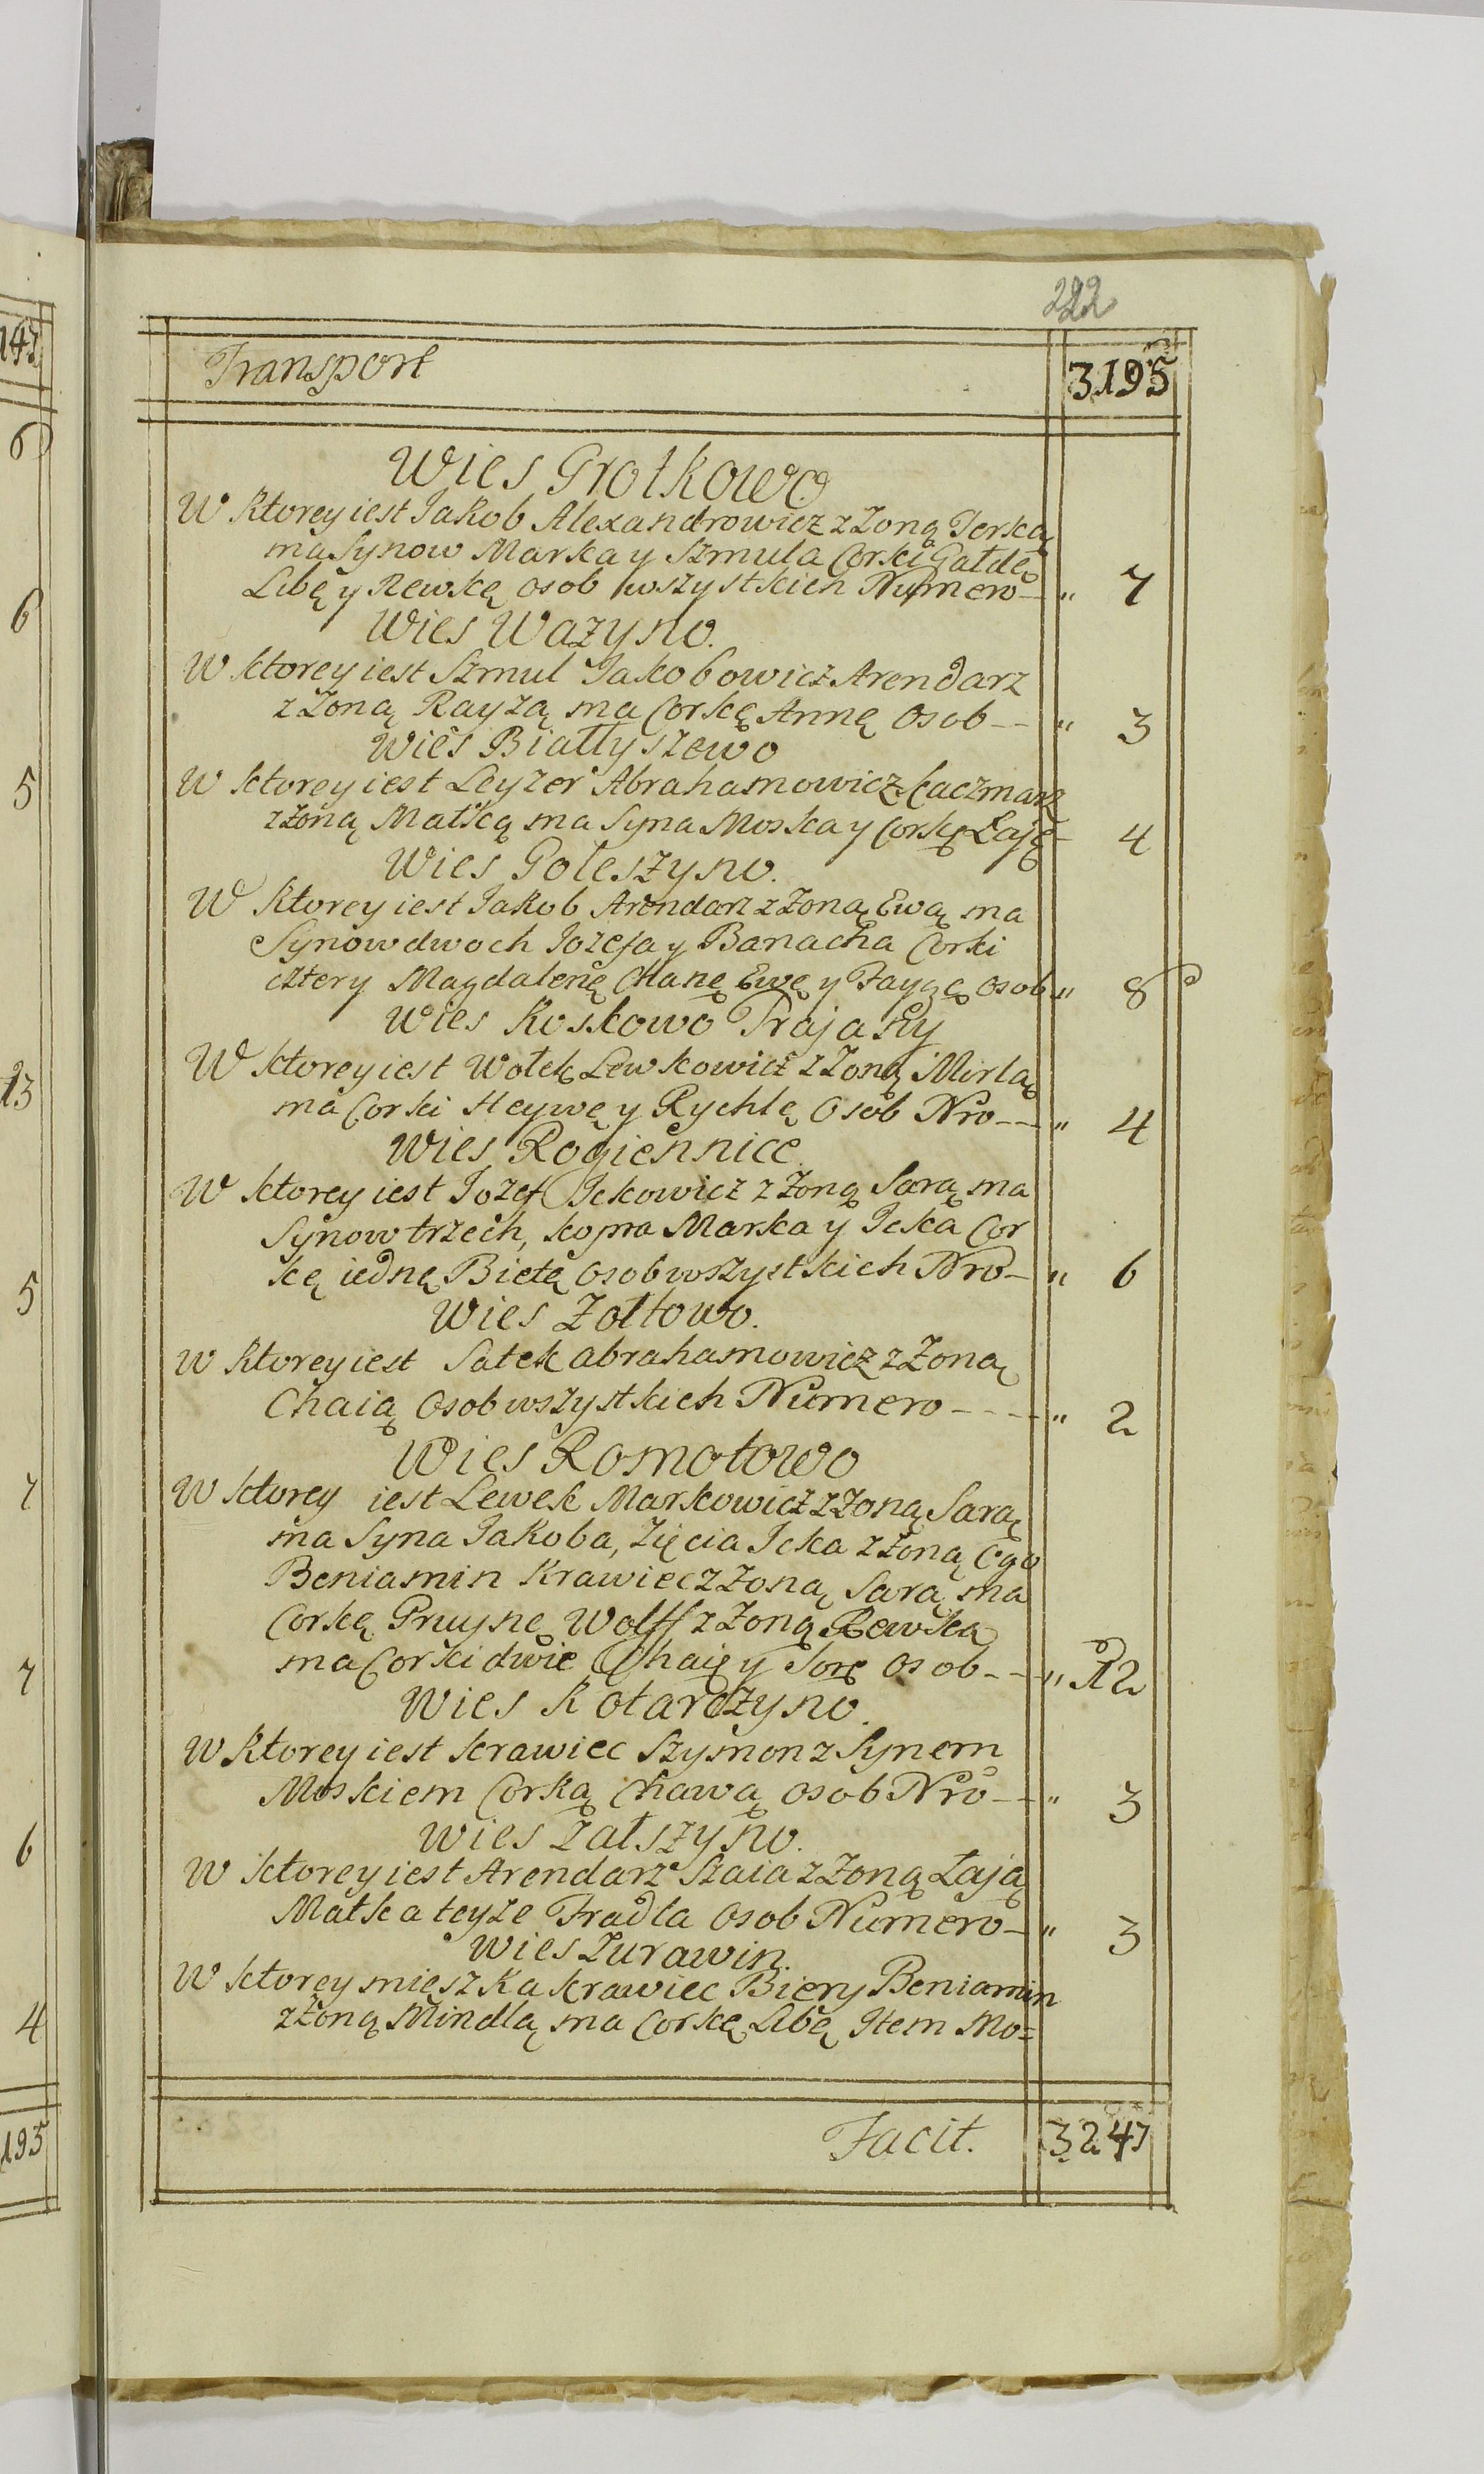 222
Transport 3195
Wies Grotkowo
W Ktorey iest Jakob Alexandrowicz z Zoną Jerską
ma Synow Marka y Szmula Corki Gałdę
Libę y Rewkę osob wszystkich Numero — " 7
Wies Wazyno.
W ktorey iest Szmul Jakobowicz Arendarz
z Zoną Rayzą ma Corkę Annę Osob -- " 3
Wies Białtyszewo
W ktorey iest Leyzer Abrahamowicz Kaczmarz
z Zoną Małką ma Syna Moska y Corkę Łaję - 4
Wies Goleszyno.
W Ktorey iest Jakob Arendarz z Zoną Ewą ma
Synow dwoch Jozefa y Banacha Corki
cztery Magdalenę Chanę Ewę y Faygę osob " 8
Wies Koskowo Trajany
W ktorey iest Wołek Lewkowicz z Zoną Mirlą
ma Corki Heywę y Rychlę Osob Nro --- " 4
Wies Rogiennice
W ktorey iest Jozef Ickowicz z Zoną Sarą ma
Synow trzech, kopra Marka y Icka Cor
kę iednę Bietę osob wszystkich Nro - " 6
Wies Zołtowo.
W Ktorey iest Satek abrahamowicz z Zoną
Chaią Osob wszystkich Numero ---- " 2
Wies Romotowo
W ktorey iest Lewek Markowicz z Zoną Sarą
ma Syna Jakoba, Zięcia Icka z Zoną Ego
Beniamin Krawiec z Zoną Sarą ma
Corkę Pruynę Wolff z Zoną Rewką
ma Corki dwie Chaię y Sorę osob --- " 12
Wies Kotarczyno.
W Ktorey iest krawiec Szymon z Synem
Moskiem Corką Chawą osob Nro -- " 3
Wies Załszyno.
W ktorey iest Arendarz Szaia z Zoną Łają
Matka teyze Fradla Osob Numero - " 3
Wies Zurawin.
W ktorey mieszka krawiec Biery Beniamin
z Zoną Mindlą ma Corkę Libę Item Mo=
Facit. 3247
147
6
6
5
13
5
7
7
6
4
195